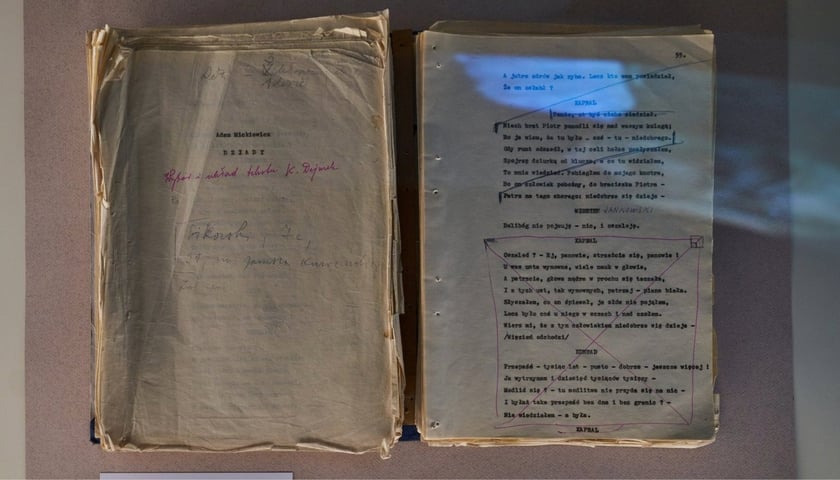 Adam Mickiewicz
DZIADY
Wybór i układ tekstu K. Dejmek
55.
A jutro zdrów jak ryba. Lecz kto wam powiedział,
Że on osłabł ?
KAPRAL
Panie, ot być cicho
Niech brat Piotr pomodli się nad waszym kolegą;
Bo ja wiem, że tu było … coś - tu - niedobrego.
Gdy runt odszedł, w tej celi hałas posłyszałem,
Spojrzę dziurką od klucza, a co tu widziałem,
To mnie wiedzieć. Pobiegłem do mojego kmotra,
Bo on człowiek pobożny, do braciszka Piotra -
Patrz na tego chorego: niedobrze się dzieje -
WIĘZIEŃ JANKOWSKI
Dalibóg nie pojmuję - nic, i oszaleję.
KAPRAL
Oszaleć ? - Ej, panowie, strzeżcie się, panowie !
U was usta wymowne, wiele nauk w głowie,
A patrzcie, głowa mądra w prochu się taczała,
I z tych ust, tak wymownych, patrzaj - piana biała.
Słyszałem, co on śpiewał, ja słów nie pojąłem,
Lecz było coś u niego w oczach i nad czołem.
Wierz mi, że z tym człowiekiem niedobrze się dzieje -
/Więzień odchodzi/
KONRAD
Przepaść - tysiąc lat - pusto - dobrze - jeszcze więcej !
Ja wytrzymam i dziesięć tysiąców tysięcy -
Modlić się ? - tu modlitwa nie przyda się na nic -
I byłaż taka przepaść bez dna i bez granic ? -
Nie wiedziałem - a była.
KAPRAL